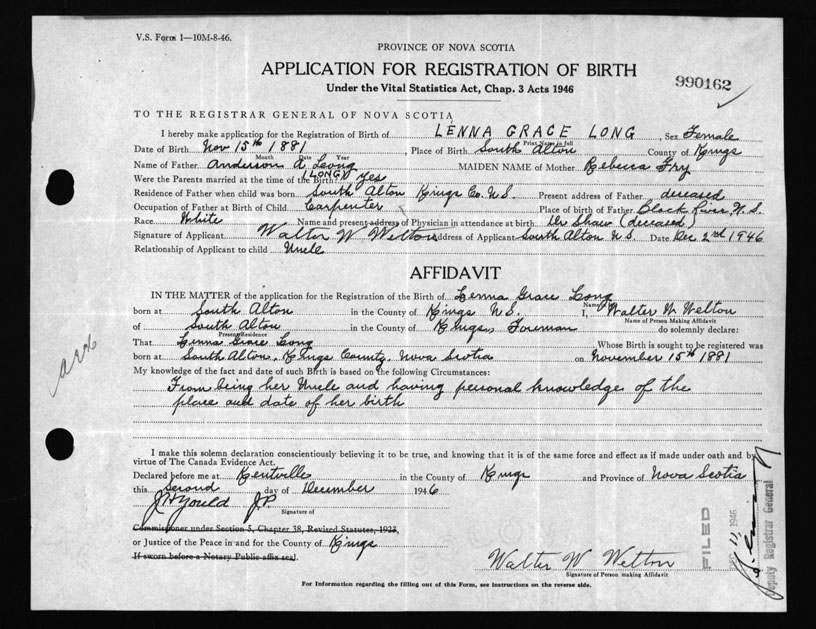 V.S. Form 1—10M-8-46.
PROVINCE OF NOVA SCOTIA
APPLICATION FOR REGISTRATION OF BIRTH
990162
Under the Vital Statistics Act, Chap. 3 Acts 1946
TO THE REGISTRAR GENERAL OF NOVA SCOTIA
I hereby make application for the Registration of Birth of LENNA GRACE LONG, Sex Female
Print Name in full
Date of Birth Nov 15th 1881, Place of Birth South Alton County of Kings
Month Day Year
Name of Father Anderson A Long MAIDEN NAME of Mother Rebecca Fry
(LONG)
Were the Parents married at the time of the Birth? Yes
Residence of Father when child was born South Alton Kings Co. N.S. Present address of Father deceased
Occupation of Father at Birth of Child Carpenter Place of birth of Father Black River N.S.
Race White Name and present address of Physician in attendance at birth Dr Shaw (deceased)
Signature of Applicant Walter W Welton Address of Applicant South Alton N.S. Date Dec 2nd 1946
Relationship of Applicant to child Uncle
AFFIDAVIT
IN THE MATTER of the application for the Registration of the Birth of Lenna Grace Long
born at South Alton in the County of Kings N.S. I, Walter W Welton
Name of Person Making Affidavit
of South Alton in the County of Kings, Foreman do solemnly declare:
Present Residence
That Lenna Grace Long Whose Birth is sought to be registered was
born at South Alton, Kings County, Nova Scotia on November 15th 1881
My knowledge of the fact and date of such Birth is based on the following Circumstances:
From being her Uncle and having personal knowledge of the
place and date of her birth
I make this solemn declaration conscientiously believing it to be true, and knowing that it is of the same force and effect as if made under oath and by
virtue of The Canada Evidence Act.
Declared before me at Kentville in the County of Kings and Province of Nova Scotia
this Second day of December 1946
J H Yould J.P.
Signature of
Commissioner under Section 5, Chapter 38, Revised Statutes, 1923,
or Justice of the Peace in and for the County of Kings
If sworn before a Notary Public affix seal.
Walter W Welton
Signature of Person making Affidavit
For Information regarding the filling out of this Form, see instructions on the reverse side.
FILED
1946
Deputy Registrar General